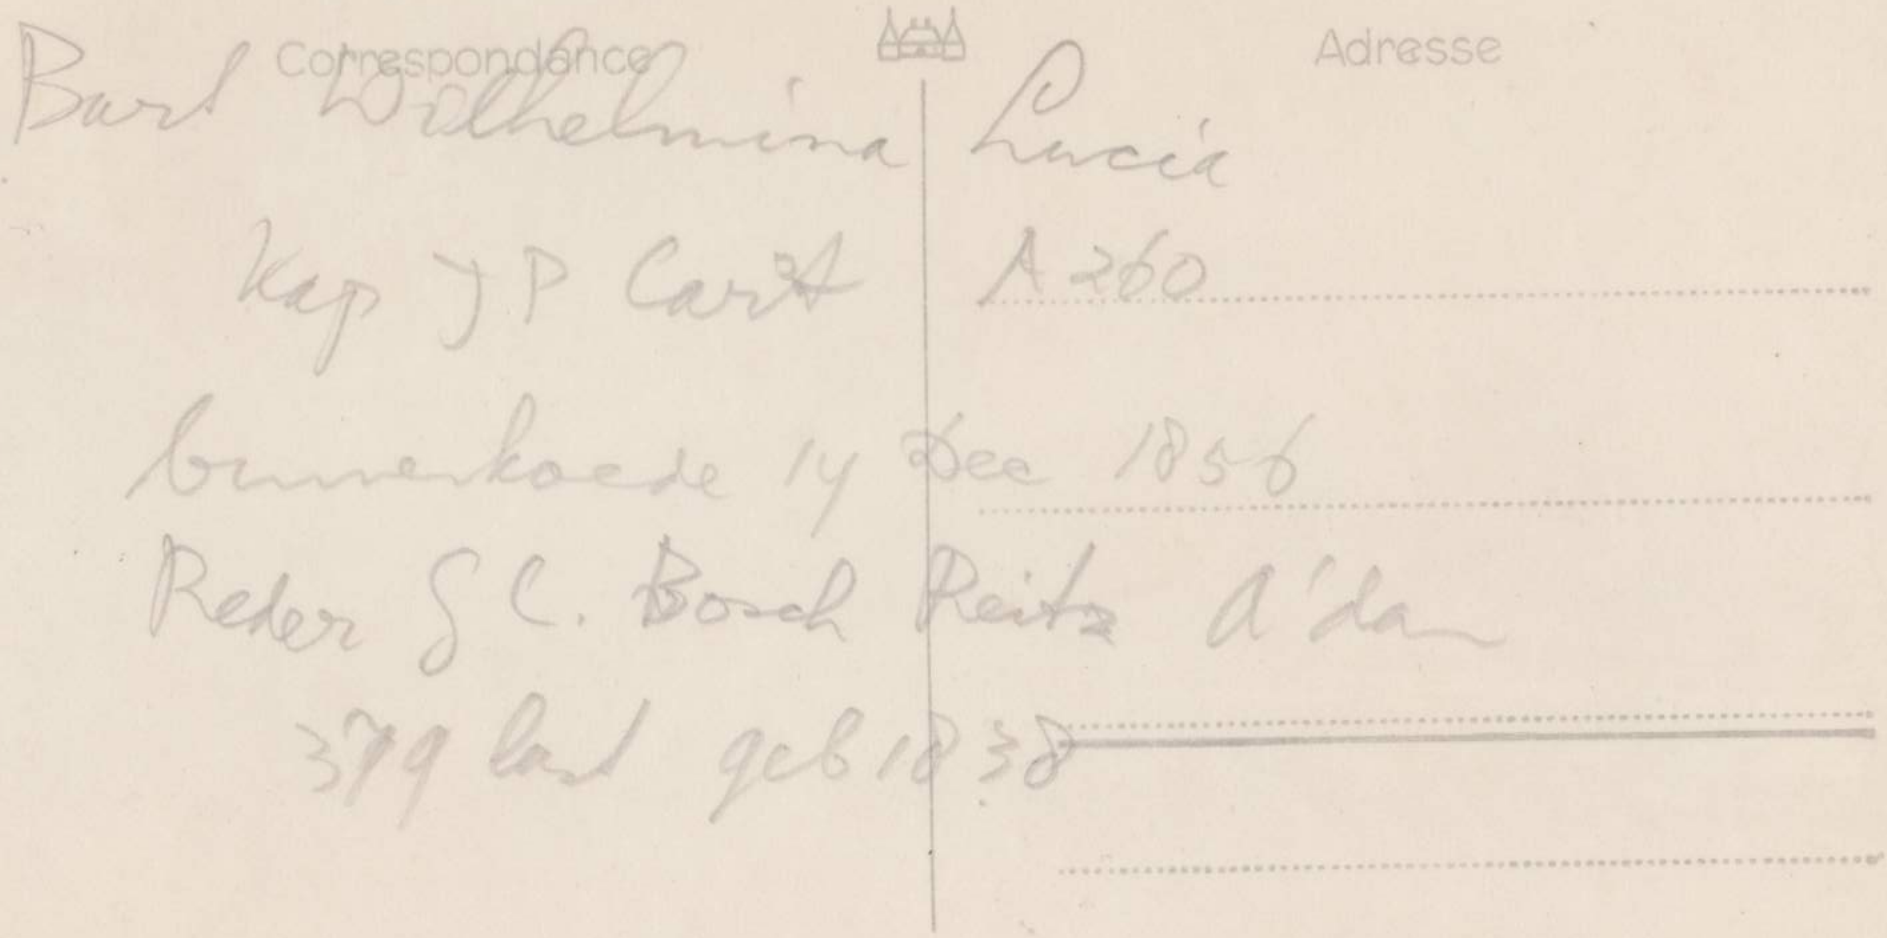 Correspondance
Adresse
Bark Wilhelmina Lucia
Kap J P Carst A 260
binnenkoede 14 Dec 1856
Reder G C. Bosch Reitz A'dam
379 last geb 1838